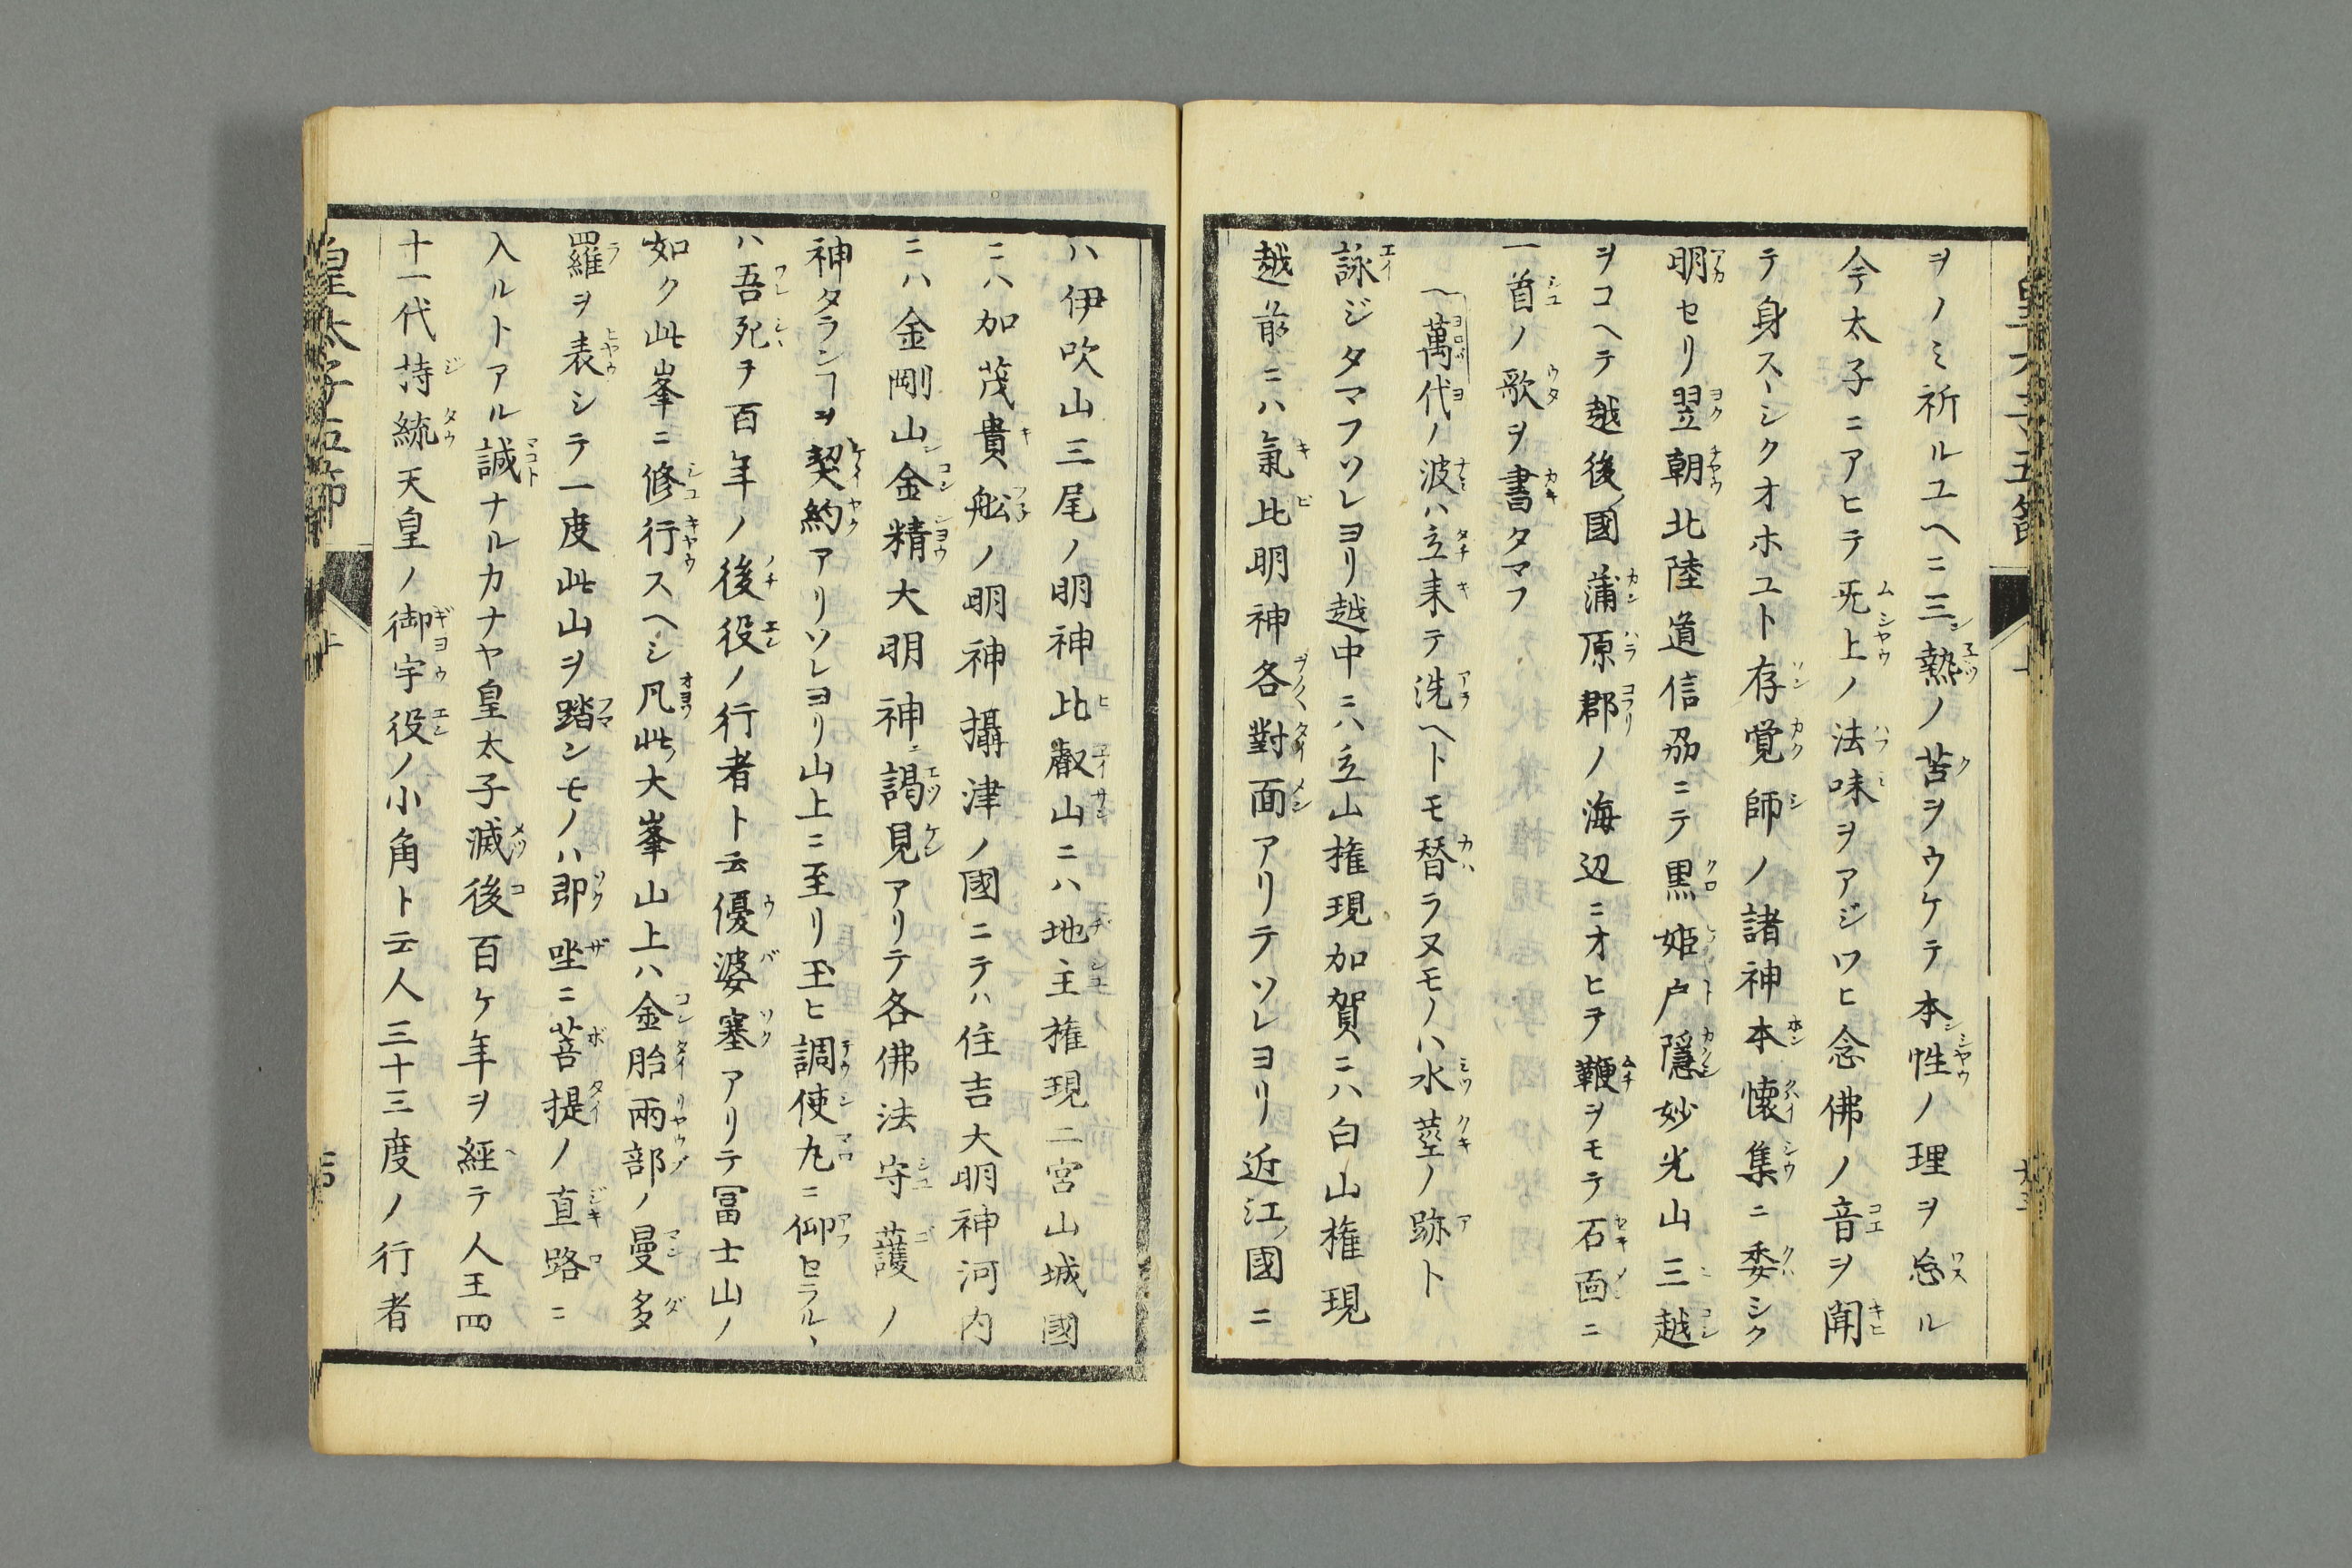 ヲノミ祈ルユヘニ三熱ノ苦ヲウケテ本性ノ理ヲ忘ル
今太子ニアヒテ旡上ノ法味ヲアジワヒ念佛ノ音ヲ聞
テ身スヽシクオホユト存覚師ノ諸神本懐集ニ委シク
明セリ翌朝北陸道信刕ニテ黒姫戸隠妙光山三越
ヲコヘテ越後ノ國蒲原郡ノ海辺ニオヒヲ鞭ヲモテ石面ニ
一首ノ歌ヲ書タマフ
萬代ノ波ハ立来テ洗ヘトモ替ラヌモノハ水莖ノ跡ト
詠ジタマフソレヨリ越中ニハ立山権現加賀ニハ白山権現
越前ニハ氣比明神各對面アリテソレヨリ近江ノ國ニ
ハ伊吹山三尾ノ明神比叡山ニハ地主権現二宮山城國
ニハ加茂貴舩ノ明神攝津ノ國ニテハ住吉大明神河内
ニハ金剛山金精大明神ニ謁見アリテ各佛法守護ノ
神タランヿヲ契約アリソレヨリ山上ニ至リ玉ヒ調使丸ニ仰セラルヽ
ハ吾死ヲ百年ノ後役ノ行者ト云優婆塞アリテ冨士山ノ
如ク此峯ニ修行スヘシ凡此ノ大峯山上ハ金胎兩部ノ曼多
羅ヲ表シテ一度此山ヲ踏ンモノハ即坐ニ菩提ノ直路ニ
入ルトアル誠ナルカナヤ皇太子滅後百ケ年ヲ經テ人王四
十一代持統天皇ノ御宇役ノ小角ト云人三十三度ノ行者
皇太子五節
上